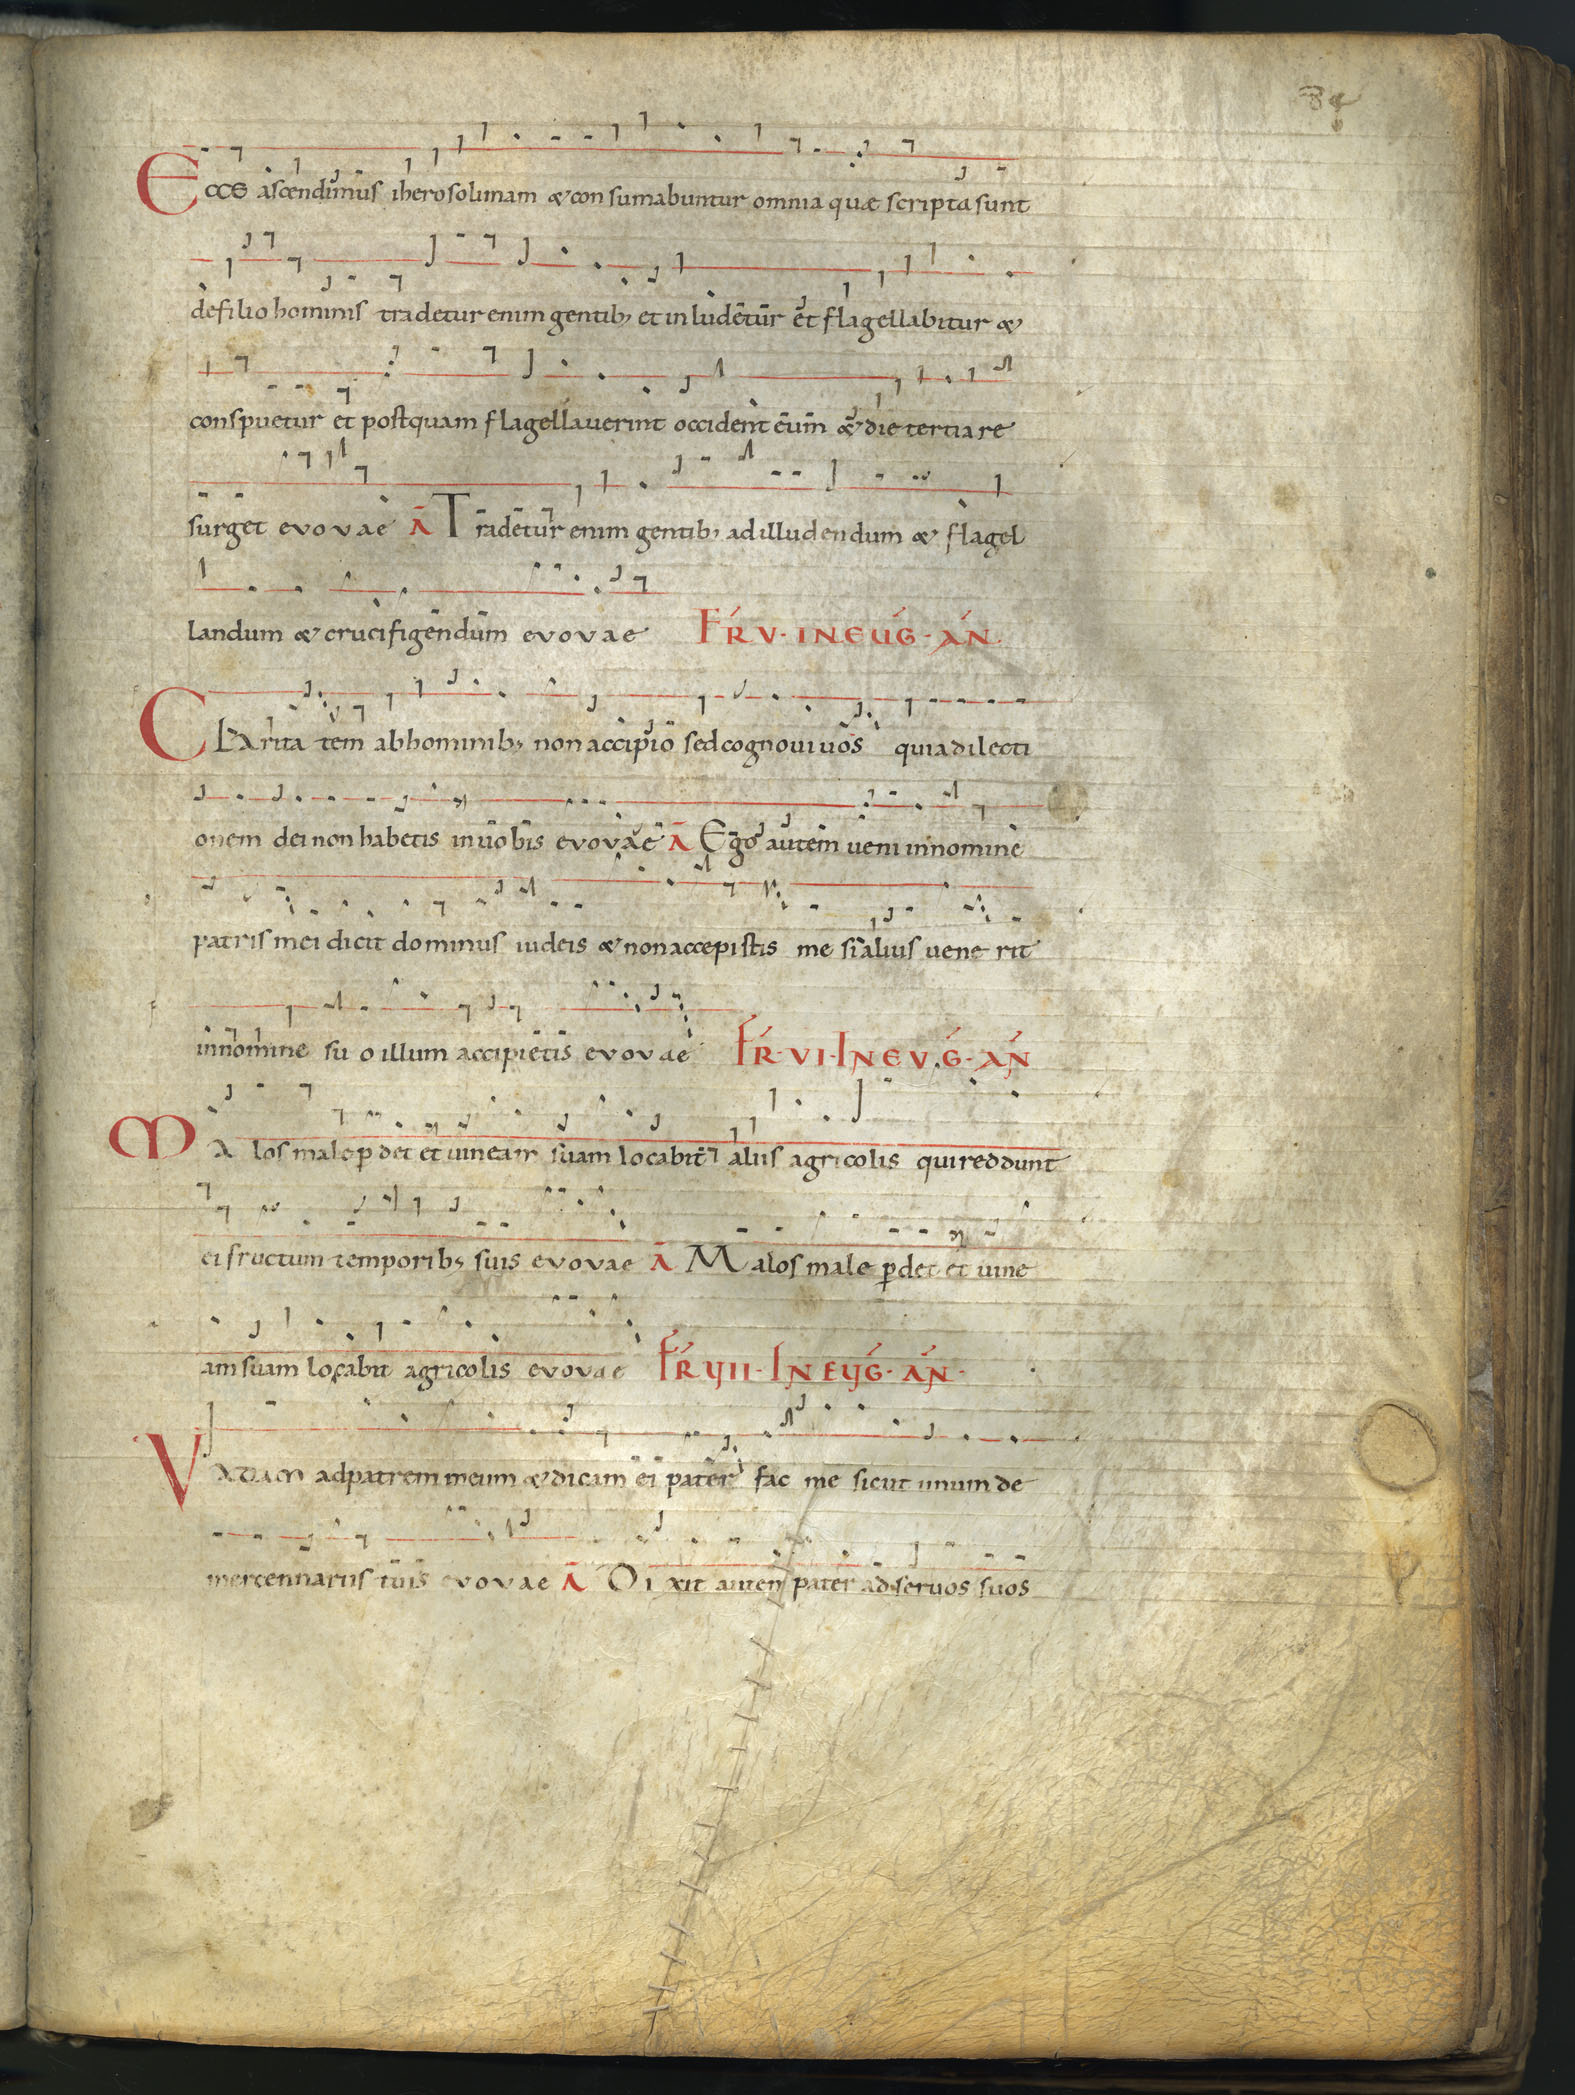 Ecce ascendimus iherosolimam & consumabuntur omnia quæ scripta sunt
de filio hominis tradetur enim gentib; et inludetur et flagellabitur &
conspuetur et postquam flagellauerint occident eum & die tertia re
surget evovae Ā Tradetur enim gentib; ad illudendum & flagel
landum & crucifigendum evovae FR V · IN EUG · AN
CHArita tem ab hominib; non accipio sed cognoui uos quia dilecti
onem dei non habetis in uobis evovae Ā Ego autem ueni in nomine
patris mei dicit dominus iudeis & non accepistis me si alius uene rit
in nomine su o illum accipietis evovae FR · VI · IN EVG · AN
MA los male pdet et uineam suam locabit aliis agricolis qui reddunt
ei fructum temporib; suis evovae Ā Malos male pdet et uine
am suam locabit agricolis evovae FR VII · IN EVG · AN ·
VADAM ad patrem meum & dicam ei pater fac me sicut unum de
mercennariis tuis evovae Ā Di xit autem pater ad seruos suos